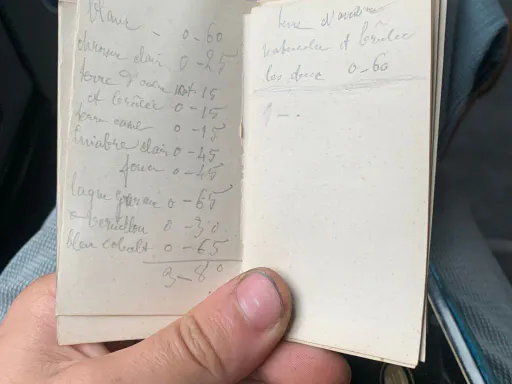 Blanc - 0-60
chrome clair 0-25
terre d'ocre 15
et brûlée 0-15
terre 0-15
clair 0-45
foncé 0-45
laque 0-65
vermillon 0-30
bleu cobalt 0-65
3-80
terre d'ombre
naturelle et brûlée
les deux 0-60